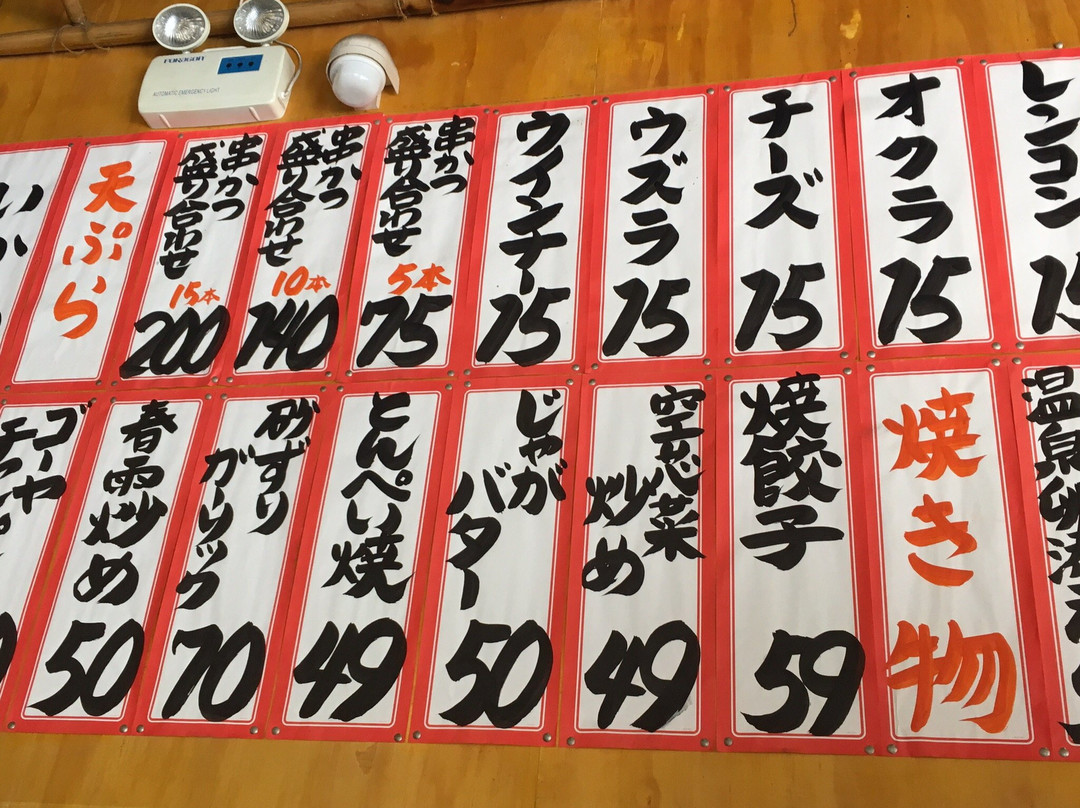 AUTOMATIC EMERGENCY LIGHT
レンコン
15
オクラ
15
チーズ
15
ウズラ
15
ウインナー
15
串かつ
盛り合わせ
5本
75
串かつ
盛り合わせ
10本
140
串かつ
盛り合わせ
15本
200
天ぷら
いか
温泉卵
焼き物
焼餃子
59
空芯菜
炒め
49
じゃが
バター
50
とんぺい焼
49
砂ずり
ガーリック
70
春雨炒め
50
ゴーヤ